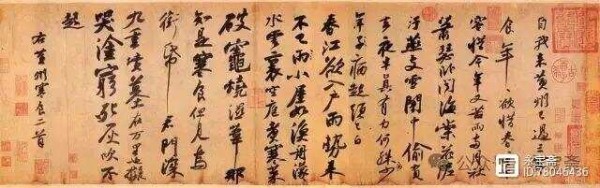 自我來黃州已過三寒
食年年欲惜春春去不
容惜今年又苦雨兩月秋
蕭瑟卧聞海棠花泥
汙燕支雪闇中偷負
去夜半真有力何殊少
年子病起頭已白
春江欲入户雨勢來
不已雨小屋如漁舟濛濛
水雲裏空庖煮寒菜
破竈燒溼葦那
知是寒食但見烏
銜帋君門深
九重墳墓在万里也擬
哭塗窮死灰吹不
起
右黃州寒食二首
永宝斋
ID:78045436